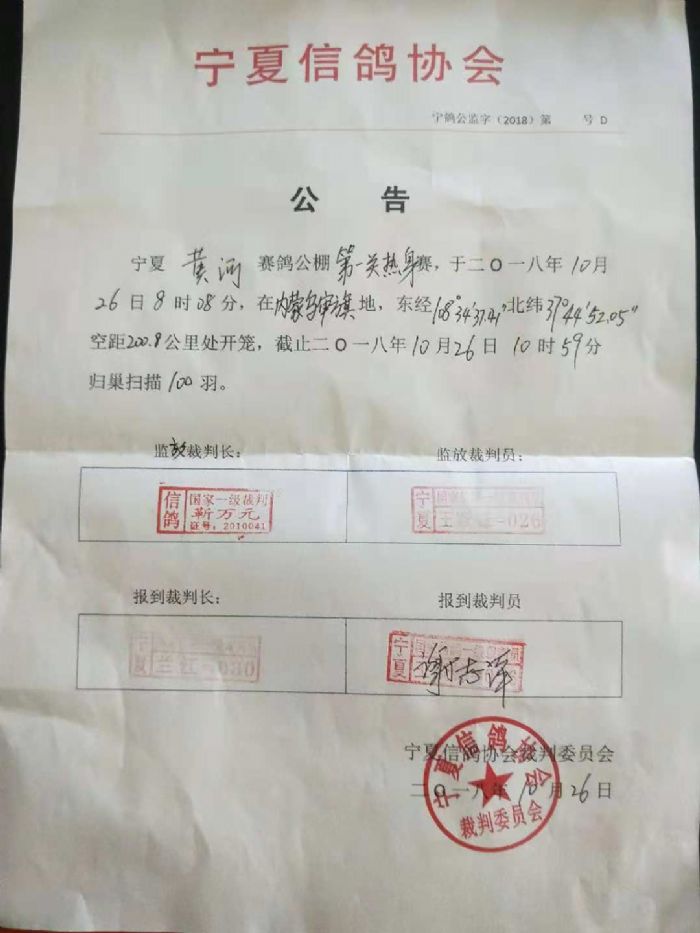 宁夏信鸽协会
宁鸽公监字（2018）第 号 D
公 告
宁夏 黄河 赛鸽公棚 第一关热身赛，于二〇一八年10月
26日8时08分，在内蒙乌审旗地，东经108°34′37.41″北纬37°44′52.05″
空距200.8公里处开笼，截止二〇一八年10月26日10时59分
归巢扫描100羽。
监放裁判长： 监放裁判员：
信鸽 国家一级裁判 靳万元 证号：2010041
宁夏 -026
报到裁判长： 报到裁判员
宁夏 兰红-030
宁夏 谢志萍
宁夏信鸽协会裁判委员会
二〇一八年10月26日
宁夏信鸽协会
裁判委员会